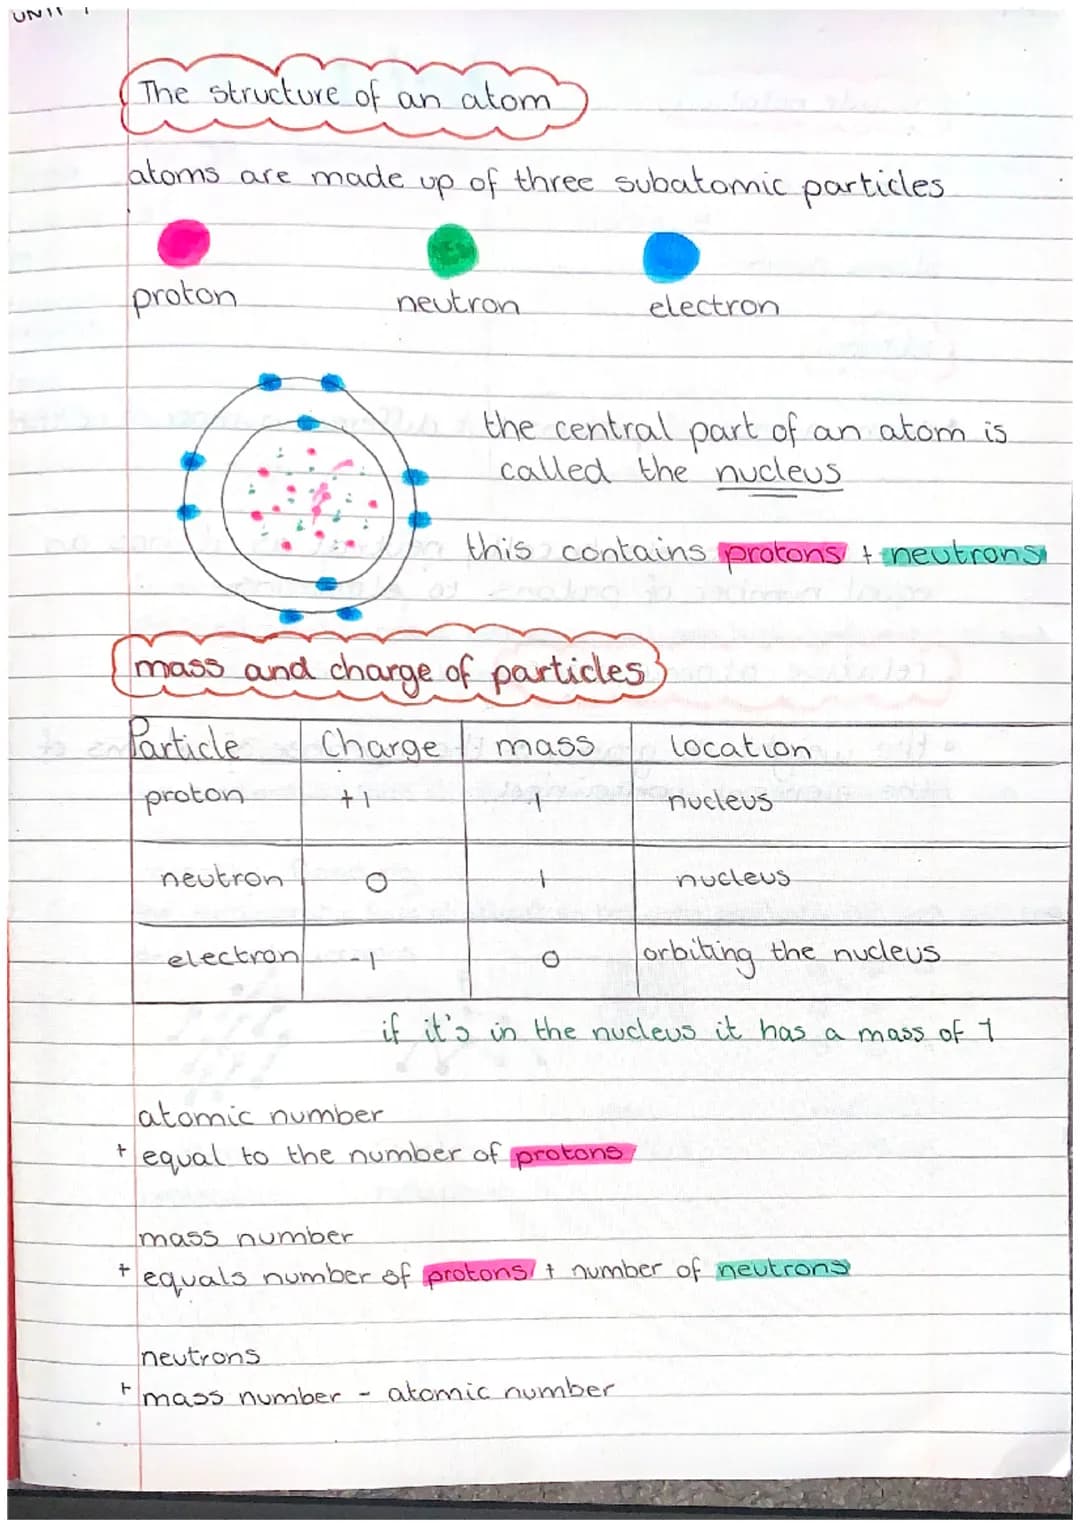 UNIT 1
The structure of an atom
atoms are made up of three subatomic particles
proton neutron electron
the central part of an atom is
called the nucleus
this contains protons + neutrons
mass and charge of particles
Particle Charge mass location
proton +1 1 nucleus
neutron 0 1 nucleus
electron -1 0 orbiting the nucleus
if it's in the nucleus it has a mass of 1
atomic number
+ equal to the number of protons
mass number
+ equals number of protons + number of neutrons
neutrons
+ mass number - atomic number